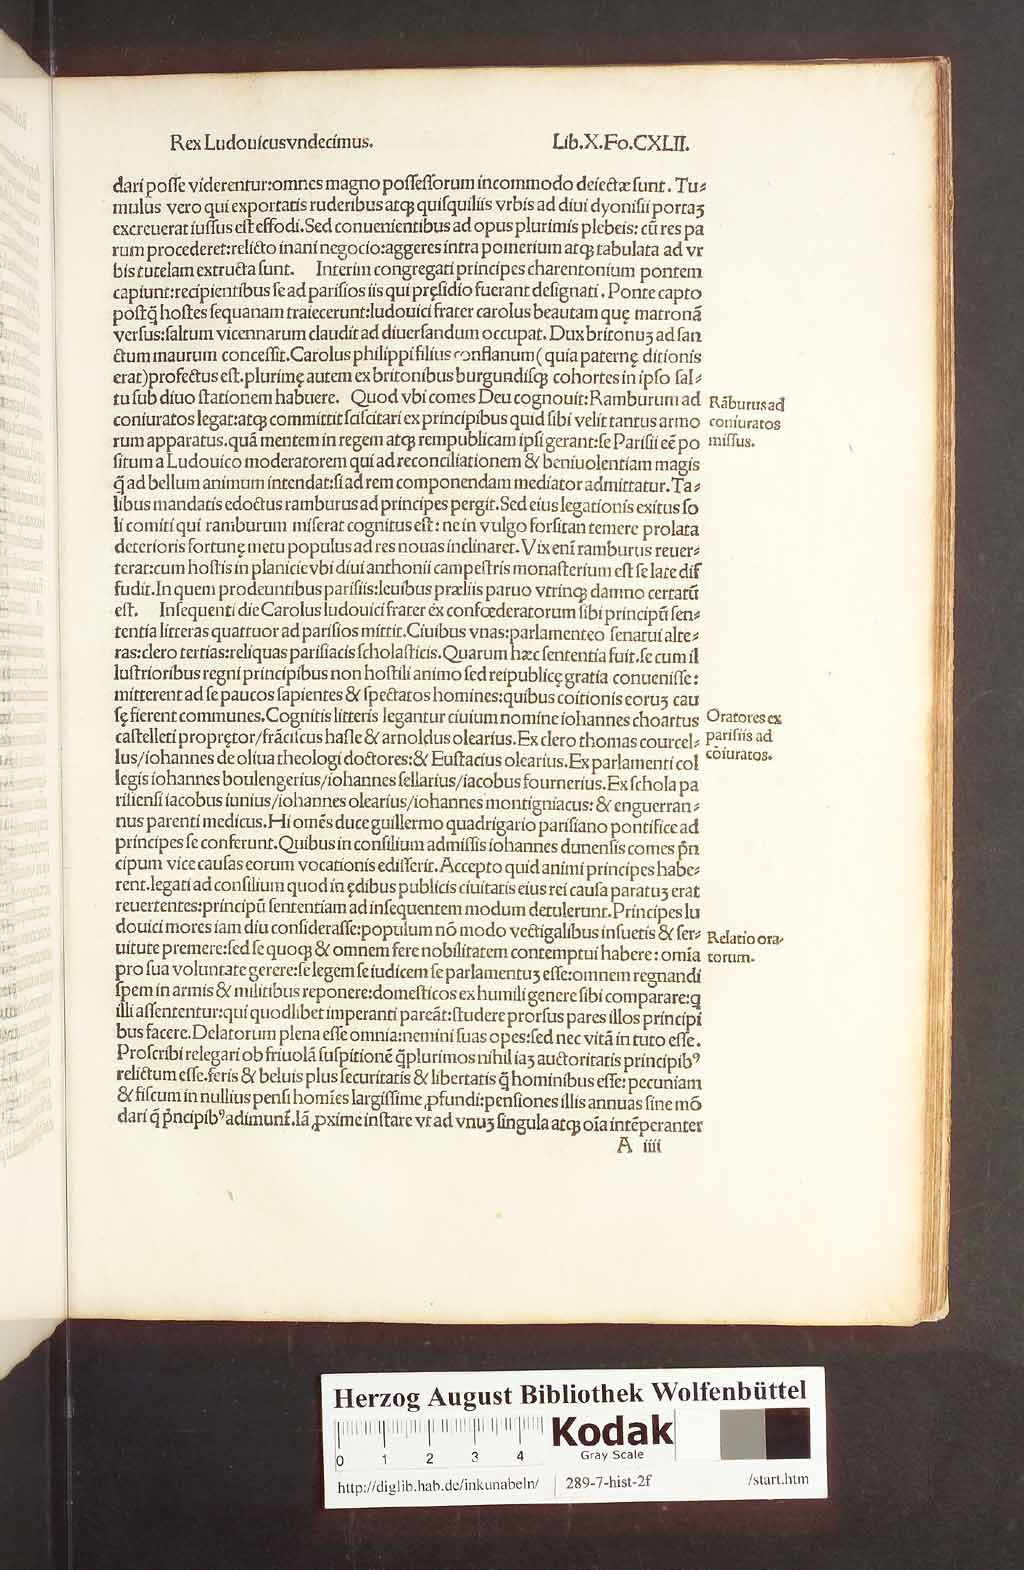 Rex Ludouicusvndecimus. Lib.X.Fo.CXLII.
dari posse viderentur:omnes magno possessorum incommodo deiectæ sunt. Tu⸗
mulus vero qui exportatis ruderibus atqꝫ quisquiliis vrbis ad diui dyonisii portaʒ
excreuerat iussus est effodi. Sed conuenientibus ad opus plurimis plebeis: cū res pa
rum procederet:relicto inani negocio:aggeres intra pomerium atqꝫ tabulata ad vr
bis tutelam extructa sunt. Interim congregati principes charentonium pontem
capiunt:recipientibus se ad parisios iis qui pręsidio fuerant designati. Ponte capto
postq̃ hostes sequanam traiecerunt:ludouici frater carolus beautam quę matronā
versus:saltum vicennarum claudit ad diuersandum occupat. Dux britonuʒ ad san
ctum maurum concessit. Carolus philippi filius conflanum( quia paternę ditionis
erat)profectus est.plurimę autem ex britonibus burgundisqꝫ cohortes in ipso sal⸗
tu sub diuo stationem habuere. Quod vbi comes Deu cognouit: Ramburum ad
coniuratos legat:atqꝫ committit sciscitari ex principibus quid sibi velit tantus armo
rum apparatus.quā mentem in regem atqꝫ rempublicam ipsi gerant:se Parisii eē po
situm a Ludouico moderatorem qui ad reconciliationem & beniuolentiam magis
q̃ ad bellum animum intendat:si ad rem componendam mediator admittatur. Ta⸗
libus mandatis edoctus ramburus ad principes pergit. Sed eius legationis exitus so
li comiti qui ramburum miserat cognitus est: ne in vulgo forsitan temere prolata
deterioris fortunę metu populus ad res nouas inclinaret. Vix enī ramburus reuer⸗
terat:cum hostis in planicie vbi diui anthonii campestris monasterium est se late dif
fudit. In quem prodeuntibus parisiis:leuibus præliis paruo vtrinqꝫ damno certatū
est. Insequenti die Carolus ludouici frater ex confœderatorum sibi principū sen⸗
tentia litteras quattuor ad parisios mittit. Ciuibus vnas:parlamenteo senatui alte⸗
ras:clero tertias:reliquas parisiacis scholasticis. Quarum hæc sententia fuit. se cum il
lustrioribus regni principibus non hostili animo sed reipublicę gratia conuenisse:
mitterent ad se paucos sapientes & spectatos homines:quibus coitionis eoruʒ cau
sę fierent communes. Cognitis litteris legantur ciuium nomine iohannes choartus
castelleti proprętor/frāciscus hasle & arnoldus olearius. Ex clero thomas courcel⸗
lus/iohannes de oliua theologi doctores:& Eustacius olearius. Ex parlamenti col
legis iohannes boulengerius/iohannes sellarius/iacobus fournerius. Ex schola pa
risiensi iacobus iunius/iohannes olearius/iohannes montigniacus: & enguerran⸗
nus parenti medicus. Hi omēs duce guillermo quadrigario parisiano pontifice ad
principes se conferunt. Quibus in consilium admissis iohannes dunensis comes p̄n
cipum vice causas eorum vocationis edisserit. Accepto quid animi principes habe⸗
rent.legati ad consilium quod in ędibus publicis ciuitatis eius rei causa paratuʒ erat
reuertentes:principū sententiam ad insequentem modum detulerunt. Principes lu
douici mores iam diu considerasse:populum nō modo vectigalibus insuetis & ser⸗
uitute premere:sed se quoqꝫ & omnem fere nobilitatem contemptui habere: omīa
pro sua voluntate gerere:se legem se iudicem se parlamentuʒ esse:omnem regnandi
spem in armis & militibus reponere:domesticos ex humili genere sibi comparare:q̄
illi assententur:qui quodlibet imperanti pareāt:studere prorsus pares illos principi
bus facere. Delatorum plena esse omnia:nemini suas opes:sed nec vitā in tuto esse.
Proscribi relegari ob friuolā suspitionē q̃plurimos nihil iaʒ auctoritatis principibꝰ
relictum esse.feris & beluis plus securitatis & libertatis q̃ hominibus esse: pecuniam
& fiscum in nullius pensi homīes largissime ꝓfundi:pensiones illis annuas sine mō
dari q̃ p̄ncipibꝰ adimunt̃. Iā ꝓxime instare vt ad vnuʒ singula atqꝫ oīa intēperanter
A iiii
Rāburus ad
coniuratos
missus.
Oratores ex
parisiis ad
cōiuratos.
Relatio ora⸗
torum.
Herzog August Bibliothek Wolfenbüttel
0 1 2 3 4
Kodak
Gray Scale
http://diglib.hab.de/inkunabeln/ 289-7-hist-2f /start.htm